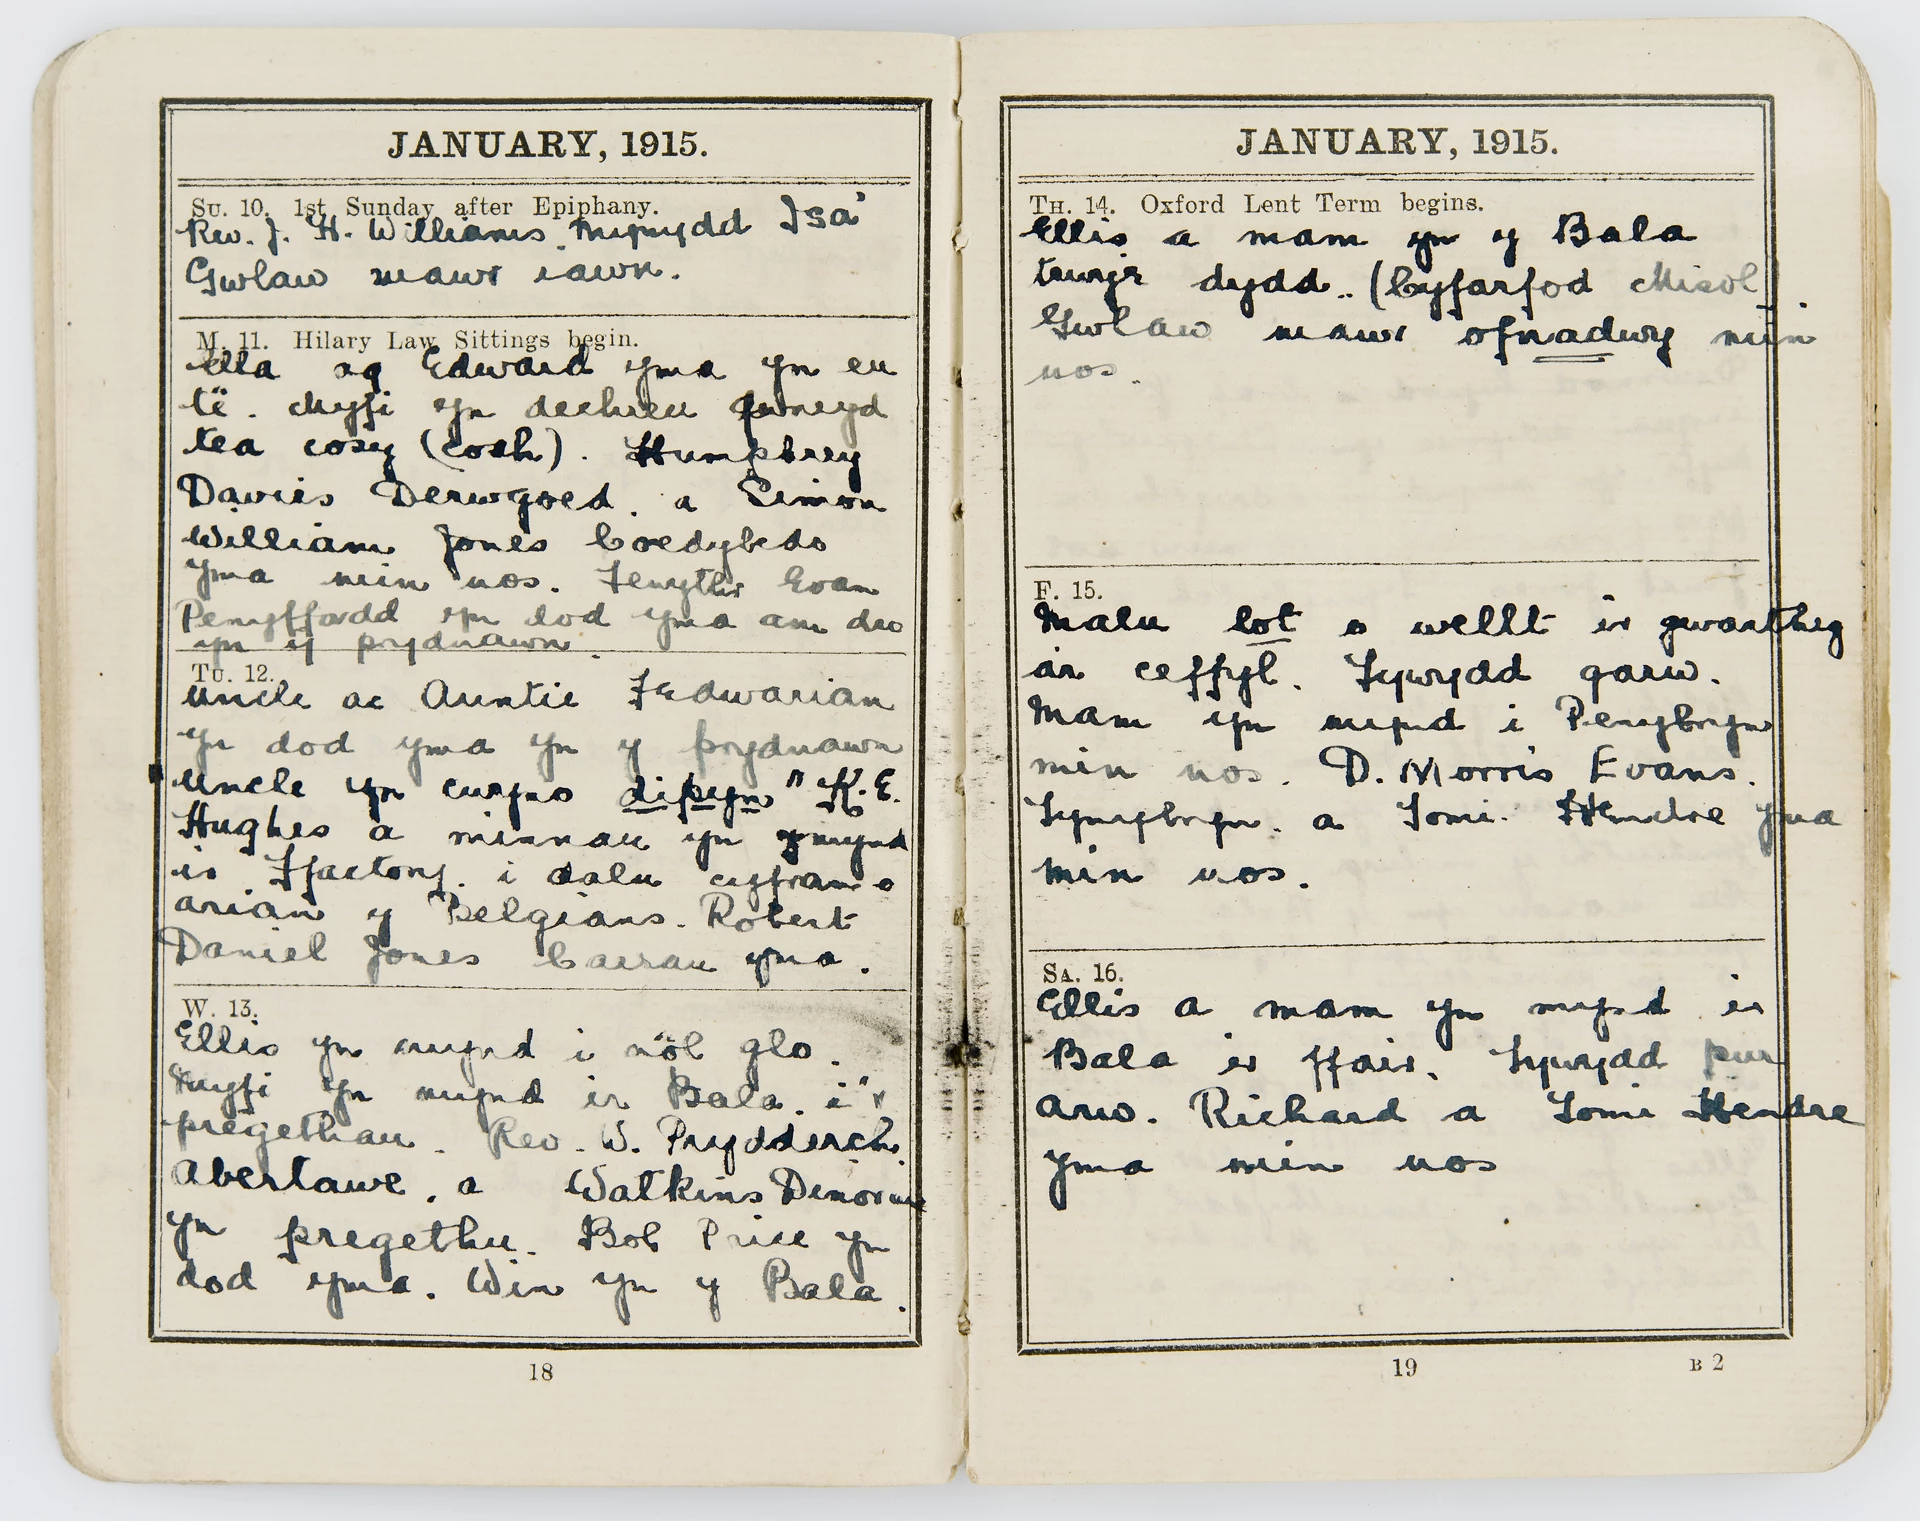 JANUARY, 1915.
SU. 10. 1st Sunday after Epiphany.
Rev. J. H. Williams. Mynydd Isa'
Gwlaw mawr iawn.
M. 11. Hilary Law Sittings begin.
Ella ag Edward yma yn eu
tê. Myfi yn dechreu gwneyd
tea cosy (cosh). Humphrey
Davies Derwgoed. a Simon
William Jones Coedybedo
yma min nos. Evan
Penyffordd yn dod yma am dro
yn y prydnawn.
TU. 12.
Uncle ac Auntie Fedwarian
yn dod yma yn y prydnawn
Uncle yn cwyno dipyn" K. E.
Hughes a minnau yn mynd
ir Ffactory. i dalu cyfran o
arian y Belgians. Robert
Daniel Jones Caerau yma.
W. 13.
Ellis yn mynd i nôl glo.
Myfi yn mynd ir Bala. i'r
pregethau. Rev. W. Prydderch.
Abertawe. a Watkins Dinorwic
yn pregethu. Bob Price yn
dod yma. Win yn y Bala.
18
JANUARY, 1915.
TH. 14. Oxford Lent Term begins.
Ellis a mam yn y Bala
trwy'r dydd.. (Cyfarfod Misol)
Gwlaw mawr ofnadwy min
nos.
F. 15.
Malu lot o wellt ir gwartheg
a'r ceffyl. Tywydd garw.
Mam yn mynd i Penybryn
min nos. D. Morris Evans.
Tynybryn. a Tomi. Hendre yma
min nos.
SA. 16.
Ellis a mam yn mynd ir
Bala ir ffair. Tywydd pur
arw. Richard a Tomi Hendre
yma min nos
19
B 2